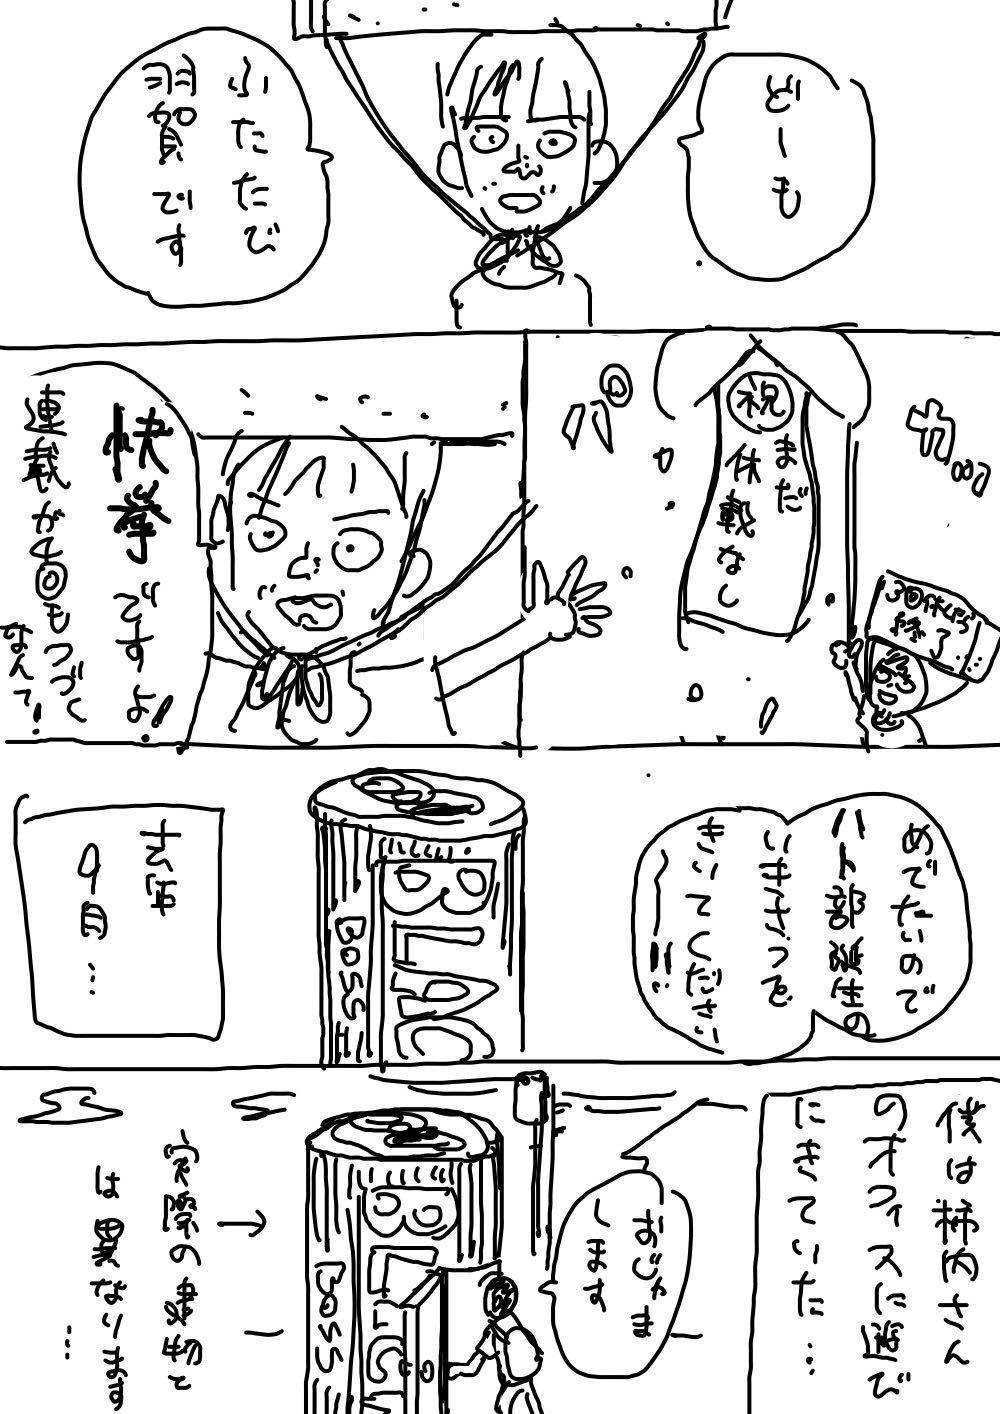 どーも
ふたたび
羽賀です
パ
カッ
祝
まだ
休載なし
3回休んだら
終了
快挙ですよ!
連載が4回も
つづく
なんて!
めでたいので
ハト部誕生の
いきさつを
きいてください
BLACK
BOSS
去年
9月…
僕は柿内さん
のオフィスに遊び
にきていた…
おじゃま
します
BLAC
BOSS
→
実際の建物と
は異なります
…